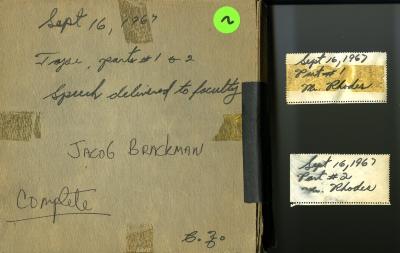 Sept 16, 1967
2
Tape, parts #1 & 2
Speech delivered to faculty
JACOB BRACKMAN
Complete
Sept 16, 1967
Part #1
M. Rhodes
Sept 16, 1967
Part #2
M. Rhodes